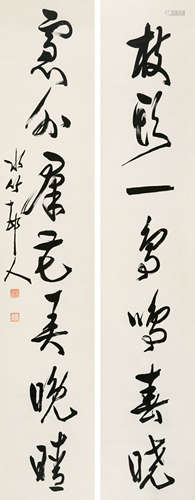 枝頭一鳥鳴春曉
窗外群花弄晚晴
水竹邨人